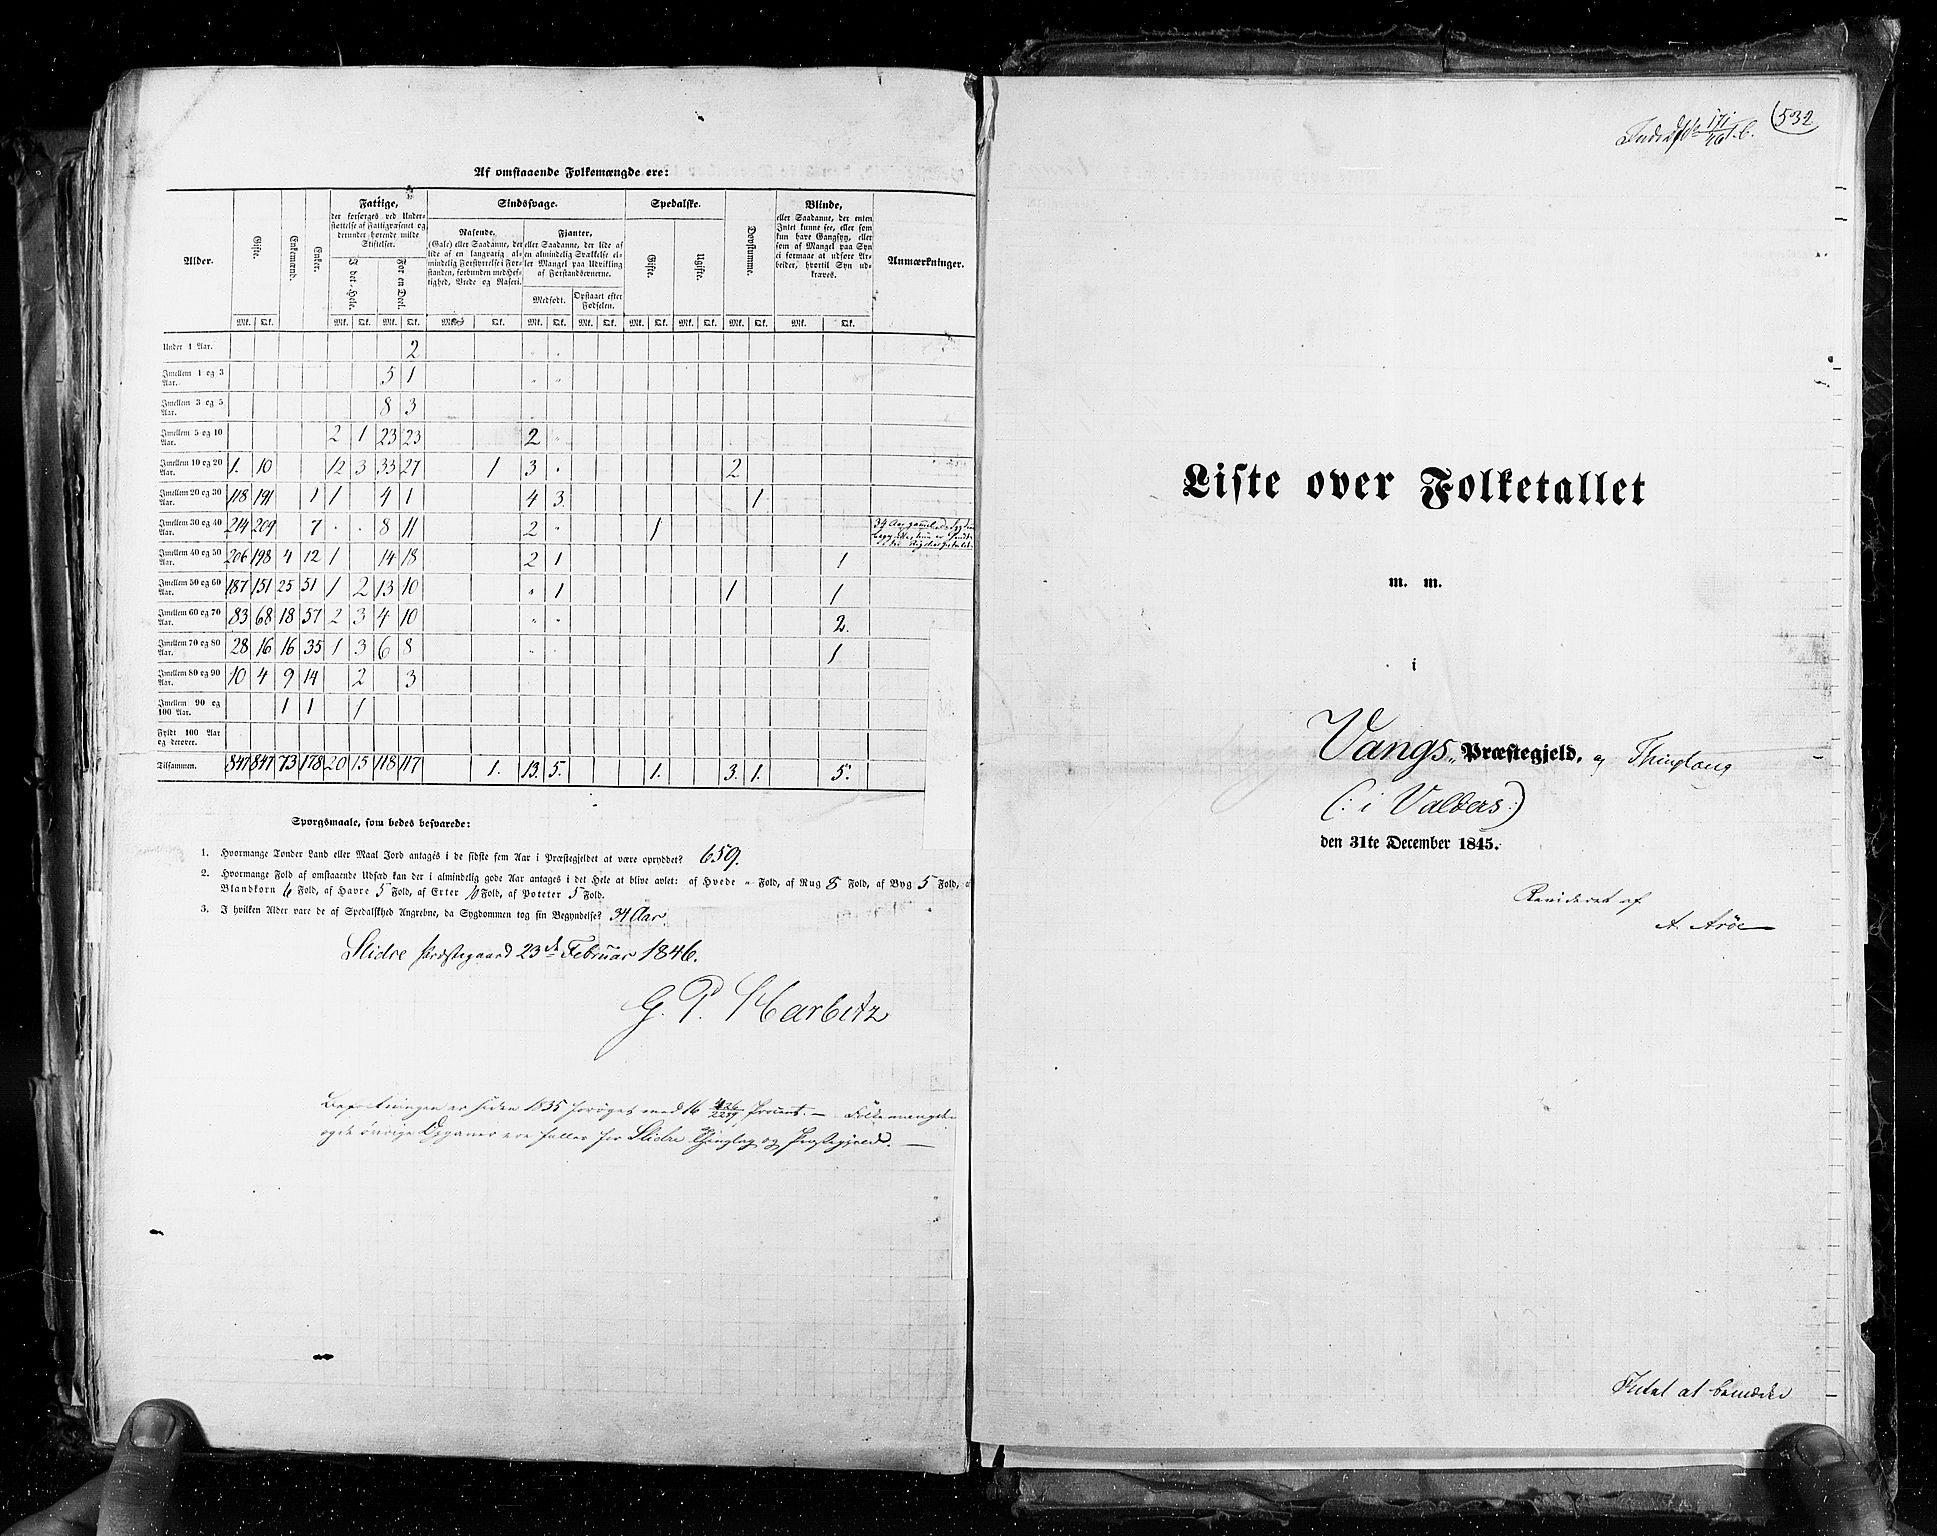 Af omstaaende Folkemængde ere:
Alder.
Gifte.
Enkemænd.
Enker.
Fattige,
der forsørges ved Under-
støttelse af Fattigvæsenet og
derunder hørende milde
Stiftelser.
I det Hele.
For en Deel.
Sindssvage.
Rasende,
(Gale) eller Saadanne, der
lide af en langvarig al-
mindelig Forstyrrelse i For-
standen, forbunden med Hef-
tighed, Vrede og Raseri.
Fjanter,
eller Saadanne, der lide af
en almindelig Svækkelse el-
ler Mangel paa Udvikling
af Forstandsevnerne.
Medfødt.
Opstaaet efter
Fødselen.
Spedalske.
Gifte.
Ugifte.
Døvstumme.
Blinde,
eller Saadanne, der enten
Intet kunne see, eller som
kun have Gangsyn, eller
som af Mangel paa Syn
ei formaae at udføre Ar-
beider, hvortil Syn ud-
kræves.
Anmærkninger.
Mk. Qk. Mk. Qk. Mk. Qk. Mk. Qk. Mk. Qk. Mk. Qk. Mk. Qk. Mk. Qk. Mk. Qk. Mk. Qk.
Under 1 Aar. 2
Imellem 1 og 3 Aar. 5 1
Imellem 3 og 5 Aar. 8 3
Imellem 5 og 10 Aar. 2 1 23 23 2
Imellem 10 og 20 Aar. 1. 10 12 3 33 27 1 3 2
Imellem 20 og 30 Aar. 118 191 1 1 4 1 4 3. 1
Imellem 30 og 40 Aar. 214 209 7 8 11 2 1 34 Aar gammel
Imellem 40 og 50 Aar. 206 198 4 12 1 14 18 2 1 1
Imellem 50 og 60 Aar. 187 151 25 51 1 2 13 10 1 1 1
Imellem 60 og 70 Aar. 83 68 18 57 2 3 4 10 2.
Imellem 70 og 80 Aar. 28 16 16 35 1 3 6 8 1
Imellem 80 og 90 Aar. 10 4 9 14 2 3
Imellem 90 og 100 Aar. 1 1 1
Fyldt 100 Aar og derover.
Tilsammen. 847 847 73 178 20 15 118 117 1. 13. 5. 1. 3. 1. 5.
Spørgsmaale, som bedes besvarede:
1. Hvormange Tønder Land eller Maal Jord antages i de sidste fem Aar i Præstegjeldet at være opryddet? 659.
2. Hvormange Fold af omstaaende Udsæd kan der i almindelig gode Aar antages i det Hele at blive avlet: af Hvede " Fold, af Rug 8 Fold, af Byg 5 Fold, a
Blandkorn 6 Fold, af Havre 5 Fold, af Erter Fold, af Poteter 5 Fold.
3. I hvilken Alder vare de af Spedalskhed Angrebne, da Sygdommen tog sin Begyndelse? 34 Aar
Slidre Præstegaard 23de Februar 1846.
G. P. Harbitz
Befolkningen er siden 1835 forøget med 16 426/2259 Procent. — Folkemængden
og de øvrige Opgaver ere fælles for Slidre Thinglag og Præstegjeld. —
532
Liste over Folketallet
m. m.
i
Vangs Præstegjeld, og Thinglaug
(: i Valders :)
den 31te December 1845.
Revideret af
A. Arøe
Intet at bemærke